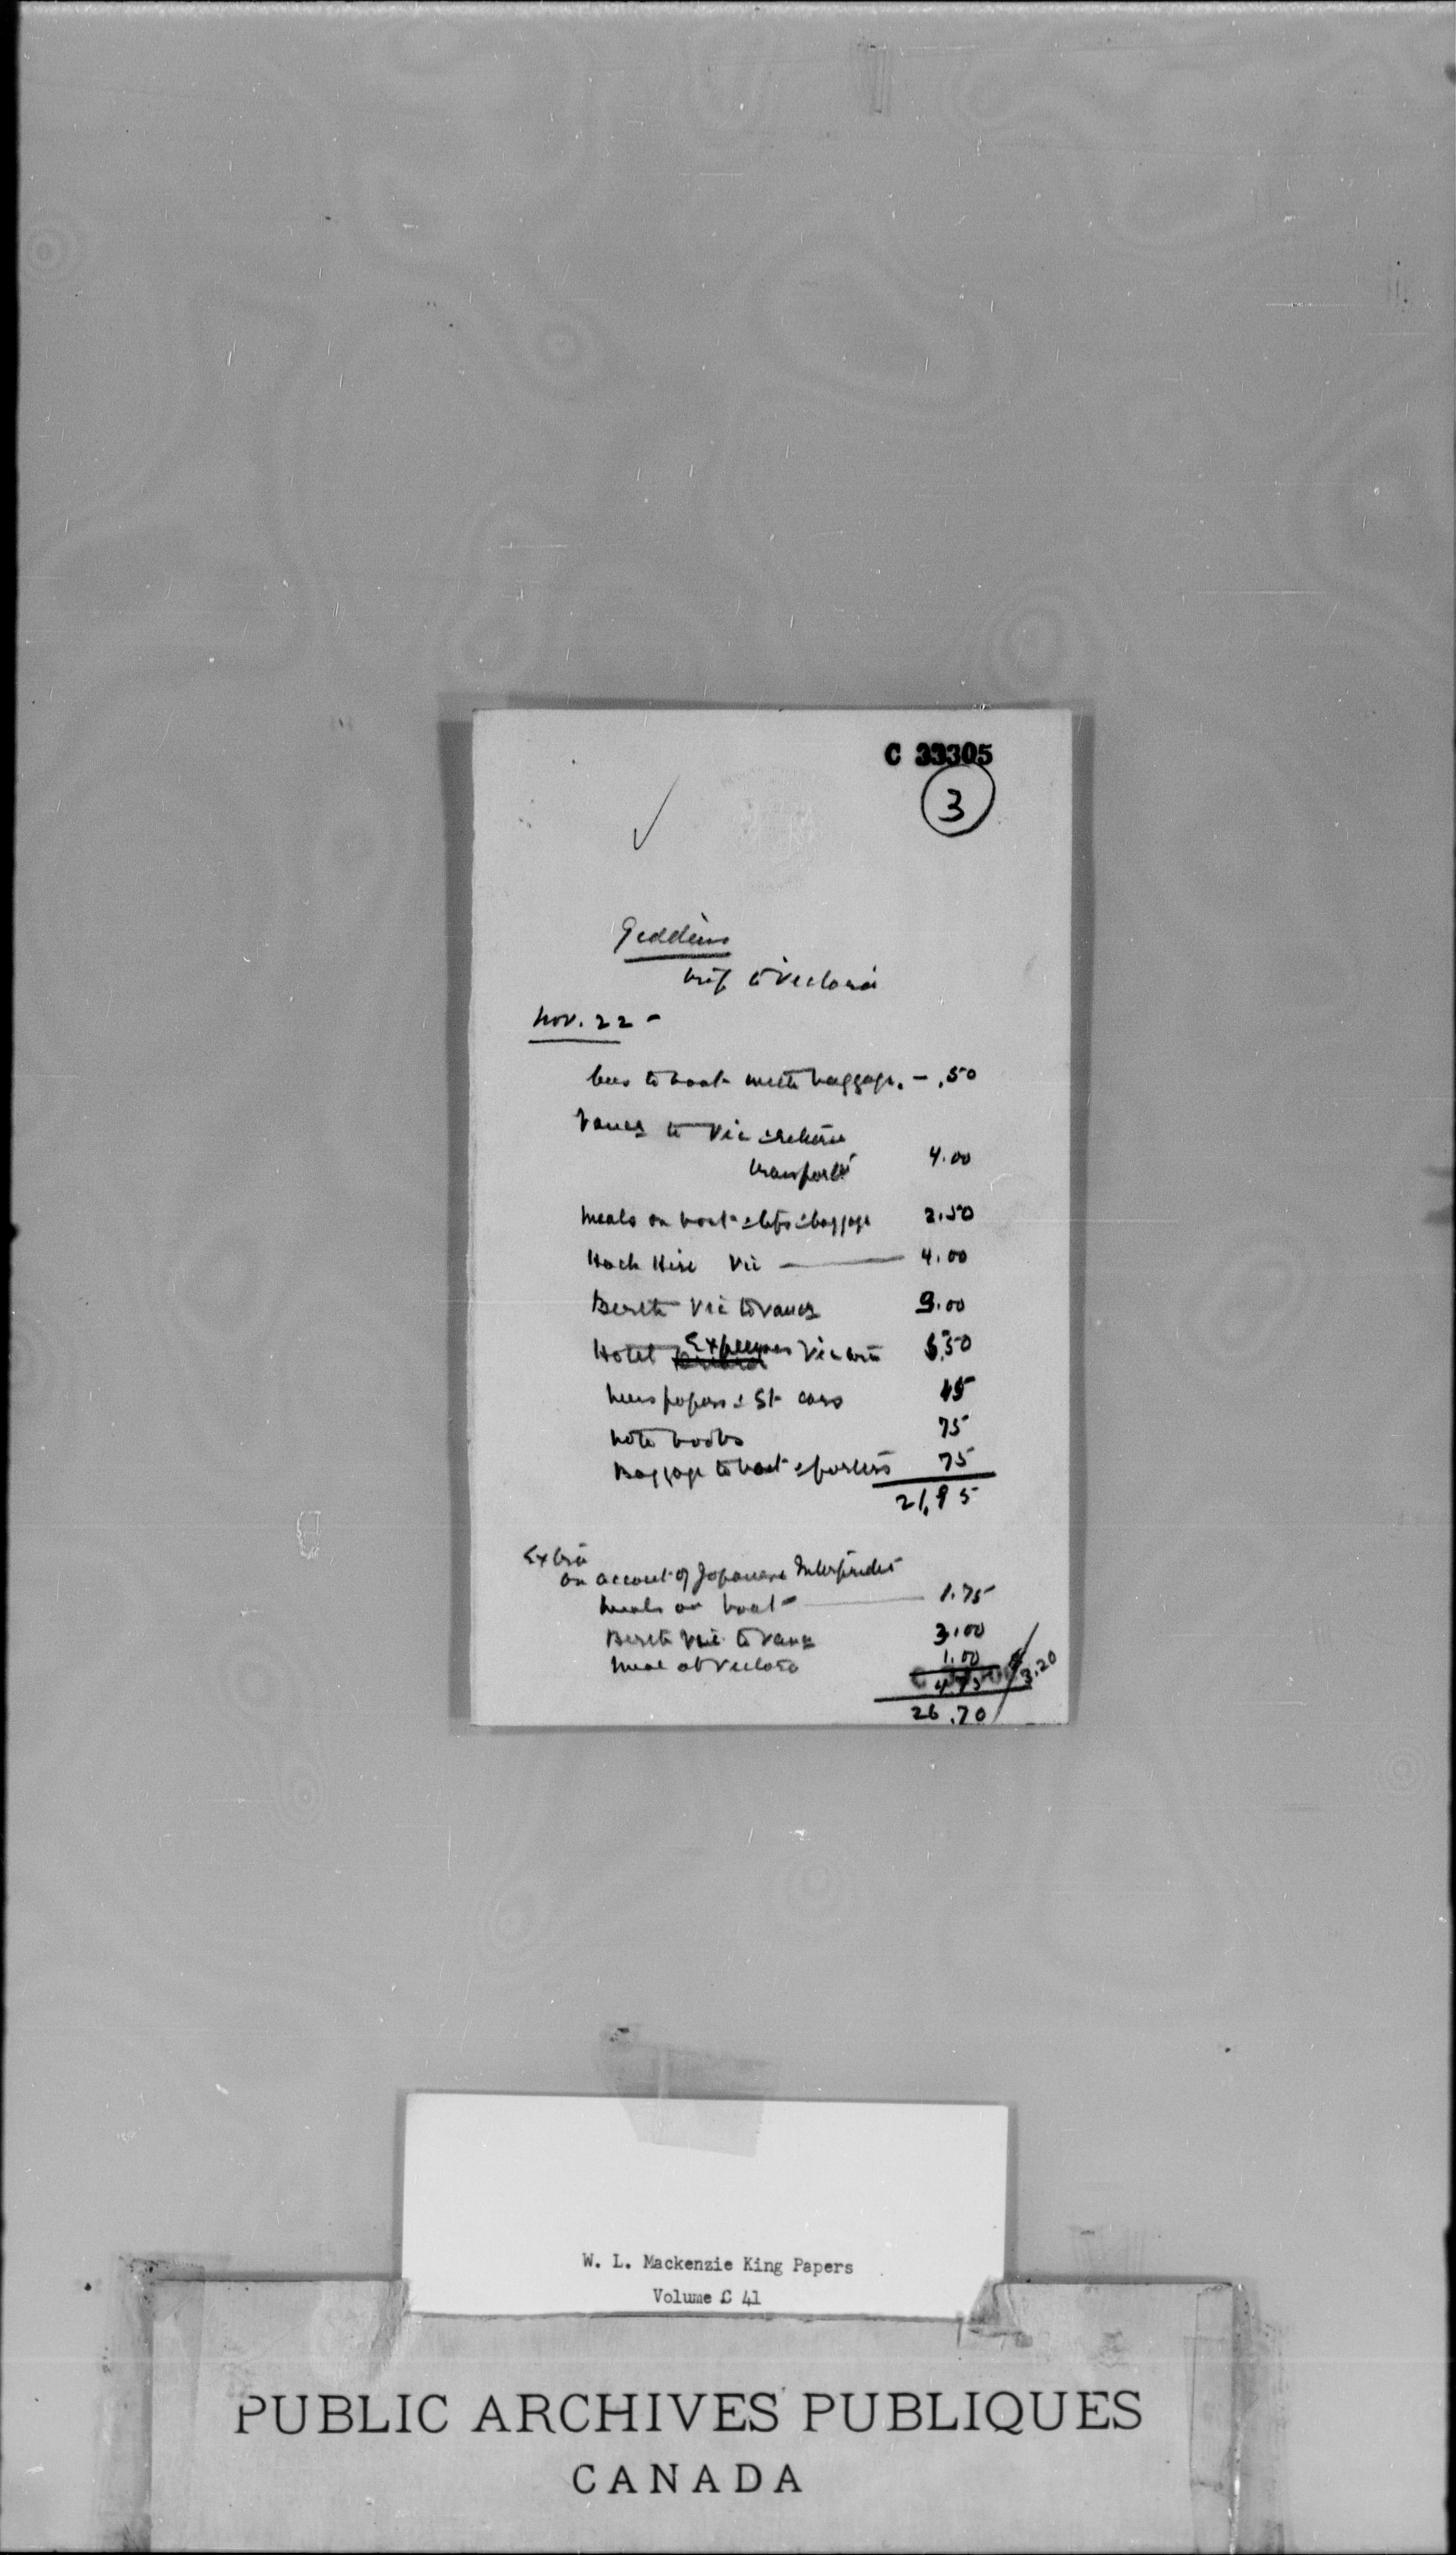 C 33305
3
Giddens
trip to Victoria
Nov. 22 -
bus to boat with baggage. - .50
Vancr to Vic & return
transport 4.00
Meals on boat & tips & baggage 2.50
Hack Hire Vic — 4.00
Berth Vic to Vancr 3.00
Hotel Expenses Victoria 6.50
Newspapers & St cars 45
Note books 75
Baggage to boat & porters 75
21.95
Extra
on account of Japanese Interpreter
Meals on boat — 1.75
Berth Vic to Vanc 3.00
Meal at Victoria 1.00
4.75 3.20
26.70
W. L. Mackenzie King Papers
Volume C 41
PUBLIC ARCHIVES PUBLIQUES
CANADA